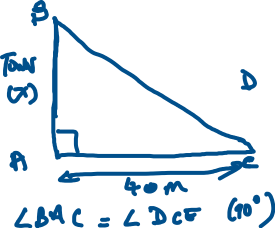 B
Tower
(x)
D
A
C
40 m
∠BAC = ∠DCE (90°)